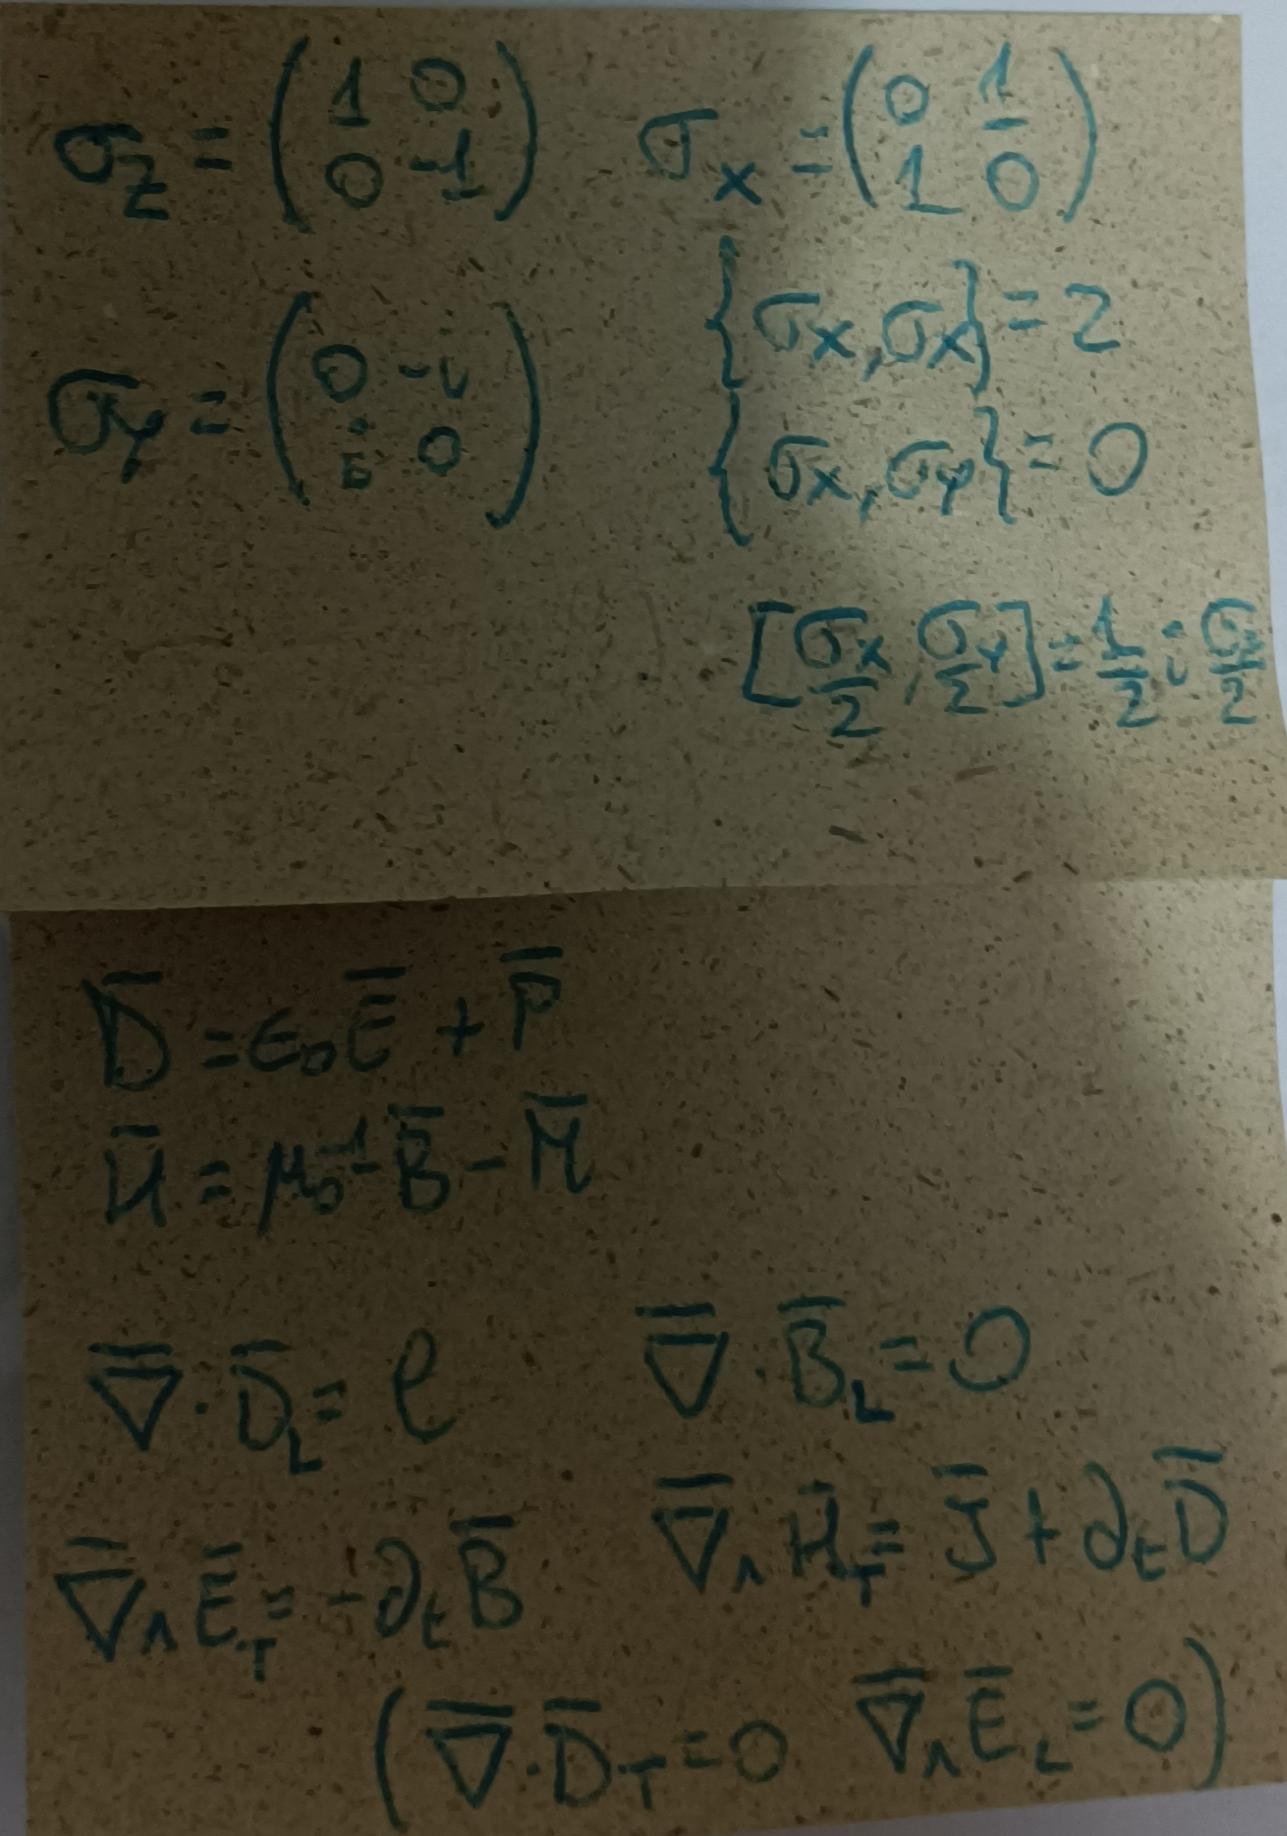 σ_z = (1 0 / 0 -1) σ_x = (0 1 / 1 0)
σ_y = (0 -i / i 0) {σ_x, σ_x} = 2
{σ_x, σ_y} = 0
[σ_x/2, σ_y/2] = 1/2 i σ_z/2
D̄ = ε₀Ē + P̄
H̄ = μ₀⁻¹ B̄ - M̄
∇̄ · D̄_L = ρ ∇̄ · B̄_L = 0
∇̄ ∧ Ē_T = -∂_t B̄ ∇̄ ∧ H̄_T = J̄ + ∂_t D̄
(∇̄ · D̄_T = 0 ∇̄ ∧ Ē_L = 0)